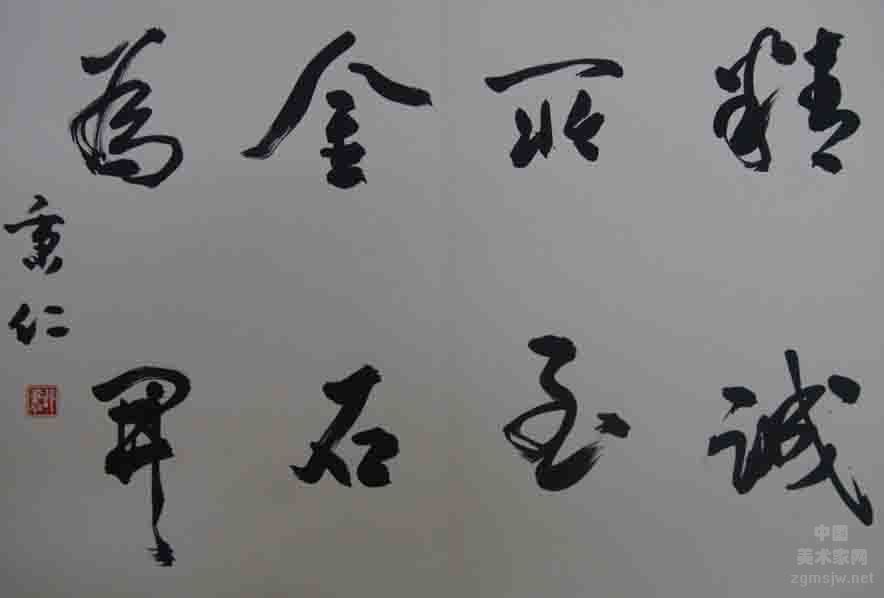 精誠
所至
金石
為開
秉仁
中国
美术家网
zgmsjw.net